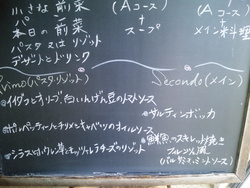 小さな前菜
+
本日の前菜
パスタ又はリゾット
デザートとドリンク
(Aコース)
+
スープ
(Aコース)
+
メイン料理
Primo(パスタ・リゾット)
※イイダコとオリーブ、白いんげん豆のトマトソース
※ポルペッティーニとチリメンキャベツのオイルソース
Secondo(メイン)
※サルティンボッカ
※鮮魚のスキレット焼き
(バルサミコ、ミントソース)